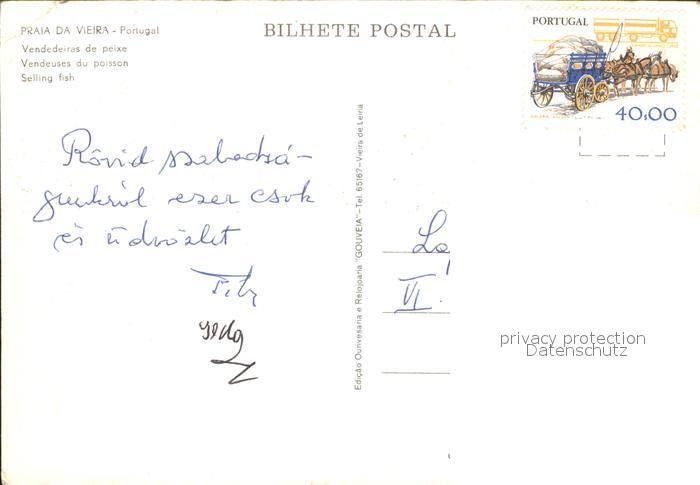 PRAIA DA VIEIRA - Portugal
Vendedeiras de peixe
Vendeuses du poisson
Selling fish
BILHETE POSTAL
PORTUGAL
40,00
Rövid szabadsá-
gunkról ezer csók
és üdvözlet
Edição Ourivesaria e Relojoaria "GOUVEIA" - Tel. 65167 - Vieira de Leiria
VI.
privacy protection
Datenschutz